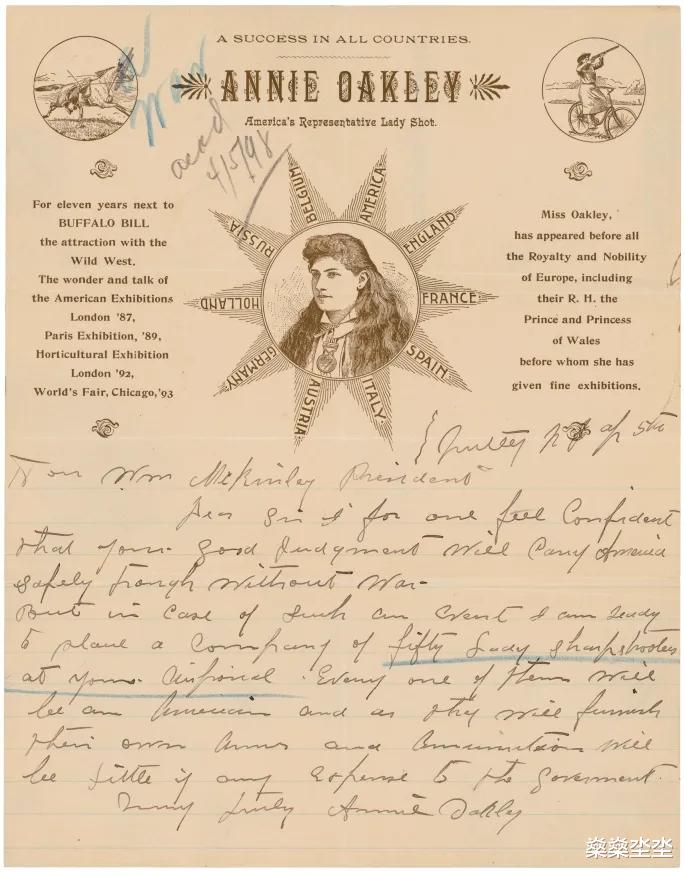 A SUCCESS IN ALL COUNTRIES.
ANNIE OAKLEY
America's Representative Lady Shot.
War
ackd
4/5/98
For eleven years next to
BUFFALO BILL
the attraction with the
Wild West.
The wonder and talk of
the American Exhibitions
London '87,
Paris Exhibition, '89,
Horticultural Exhibition
London '92,
World's Fair, Chicago, '93
BELGIUM
AMERICA
ENGLAND
FRANCE
SPAIN
ITALY
AUSTRIA
GERMANY
HOLLAND
RUSSIA
Miss Oakley,
has appeared before all
the Royalty and Nobility
of Europe, including
their R. H. the
Prince and Princess
of Wales
before whom she has
given fine exhibitions.
Nutley N J Ap 5th
Hon Wm McKinley President
Dear Sir I for one feel Confident
that your good judgment will carry America
safely trough without War-
But in case of such an event I am ready
to place a Company of fifty lady sharpshooters
at your disposal. Every one of them will
be an American and as they will furnish
their own Arms and Ammunition will
be little if any expense to the goverment.
Very truly Annie Oakley
燊燊坔坔